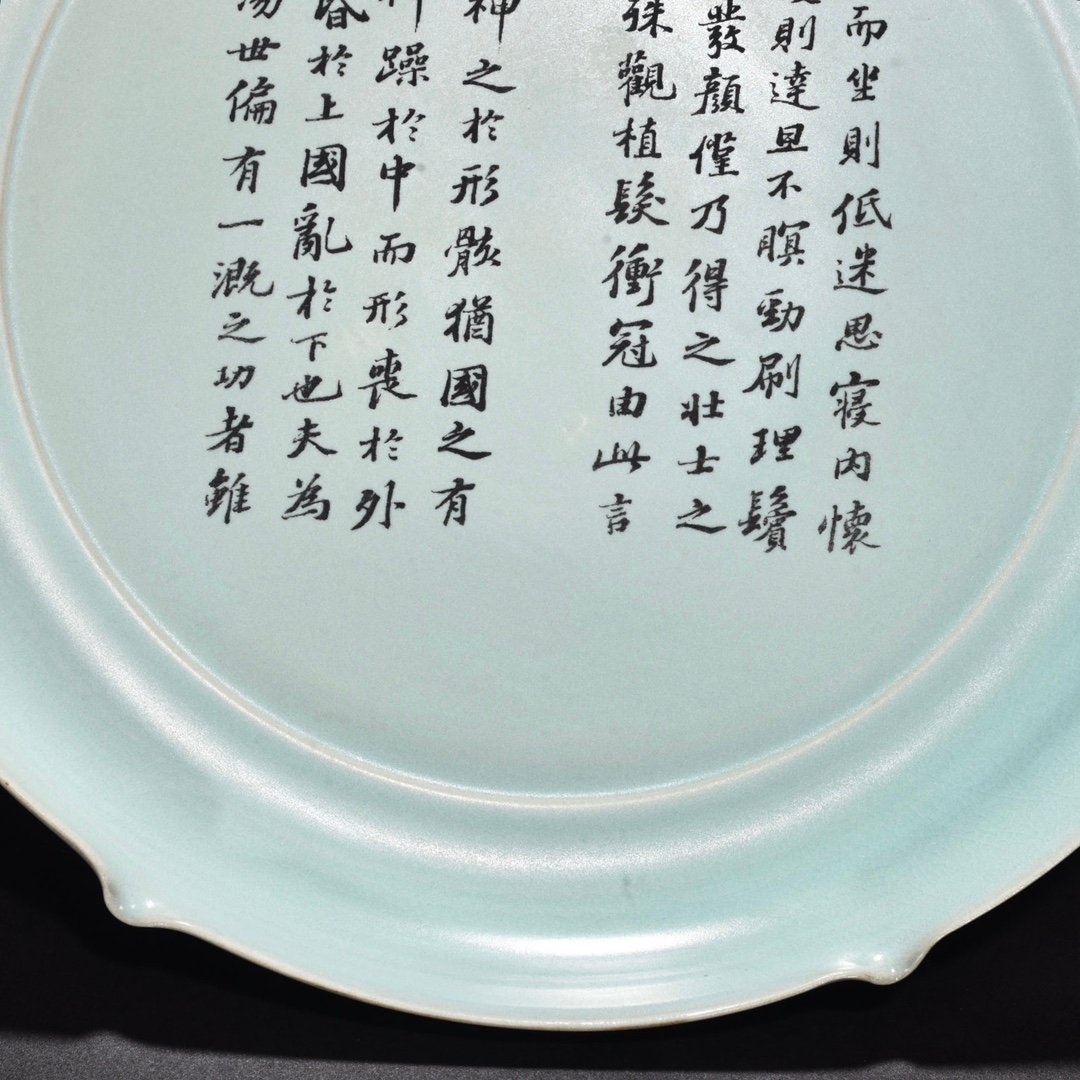 而坐則低迷思寢内懷
則達旦不瞑勁刷理鬢
發顏僅乃得之壯士之
殊觀植髮衝冠由此言
神之於形骸猶國之有
躁於中而形喪於外
昏於上國亂於下也夫為
世偏有一溉之功者雖